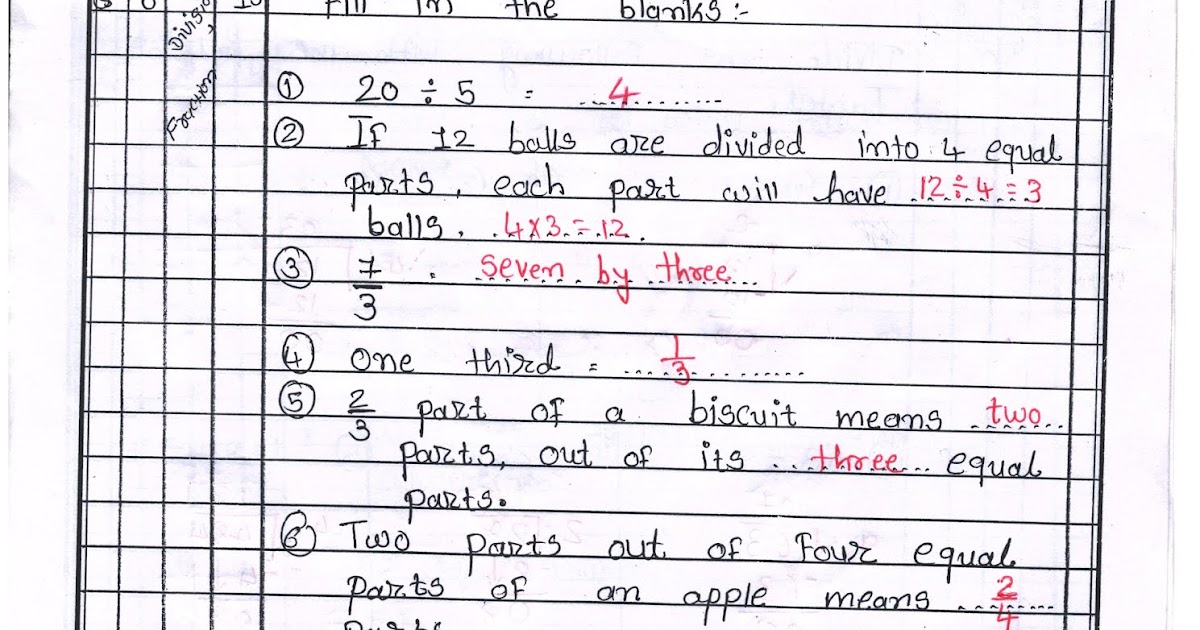 10 Fill in the blanks :-
Division
Fraction
① 20 ÷ 5 = ...4........
② If 12 balls are divided into 4 equal
parts, each part will have .12÷4=3
balls. .4x3.=.12.
③ 7/3 . seven by three...
④ One third = .....1/3..........
⑤ 2/3 part of a biscuit means .two..
parts, out of its ...three... equal
parts.
⑥ Two parts out of Four equal
parts of an apple means ...2/4....